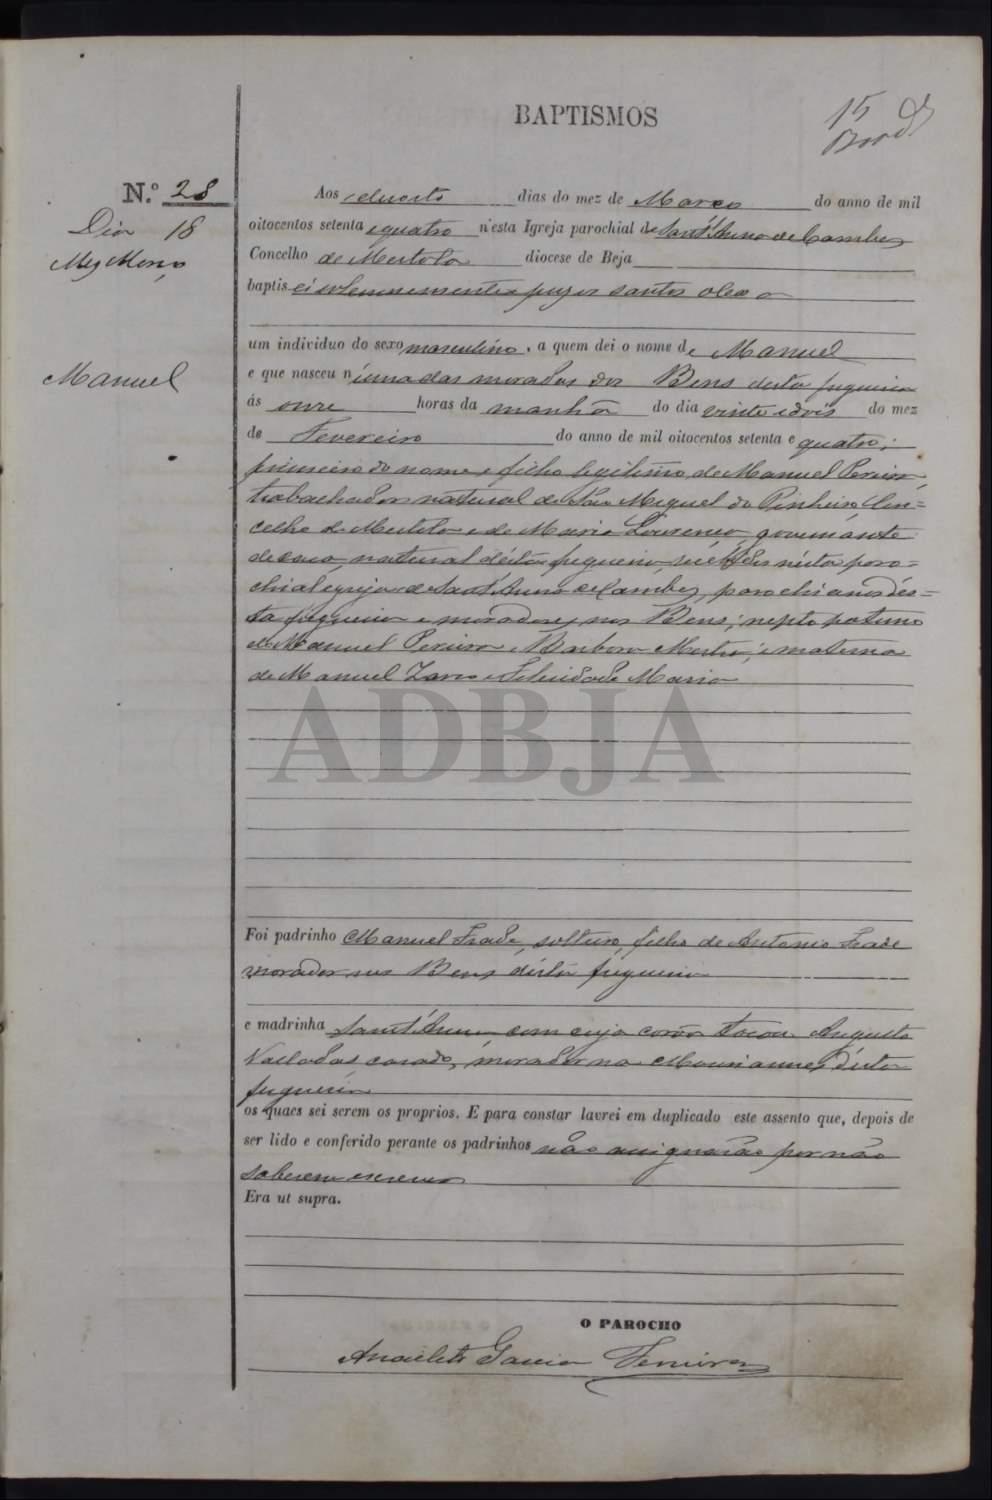 BAPTISMOS
15
N.º 28
Dia 18
Mez Março
Manuel
Aos dezoito dias do mez de Março do anno de mil
oitocentos setenta e quatro n'esta Igreja parochial de Sant'Anna de Cambas
Concelho de Mertola diocese de Beja
baptisei solemnemente e puz os santos oleos
um individuo do sexo masculino, a quem dei o nome de Manuel
e que nasceu n'uma das moradas dos Bens desta freguezia
ás onze horas da manhã do dia vinte e dois do mez
de Fevereiro do anno de mil oitocentos setenta e quatro;
primeiro do nome e filho legitimo de Manuel Pereira,
trabalhador natural de São Miguel do Pinheiro, Con=
celho de Mertola e de Maria Lourenço, governante
de casa, natural désta freguezia, recebidos nésta paro=
chial egreja de Sant'Anna de Cambas, parochianos dés=
ta freguezia e moradores nos Bens; nepto paterno
de Manuel Pereira e Barbara Mestre; e materno
de Manuel Zarco e Felicidade Maria
ADBJA
Foi padrinho Manuel Frade, solteiro, filho de Antonio Frade
morador nos Bens désta freguezia
e madrinha Sant'Anna com cuja corôa tocou Augusto
Valladas casado, morador na désta
freguezia
os quaes sei serem os proprios. E para constar lavrei em duplicado este assento que, depois de
ser lido e conferido perante os padrinhos não assignarão por não
saberem escrever
Era ut supra.
O PAROCHO
Anacleto Garcia Ferreira